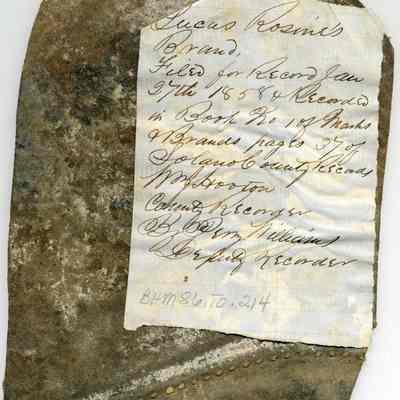 Lucas Rosine's
Brand,
Filed for Record Jan
27th 1858 & Recorded
in Book No 1 of Marks
& Brands, pages 37 of
Solano County Records
Wm Hooton
County Recorder
By Perry Williams
Deputy Recorder
BHM86.TO.214